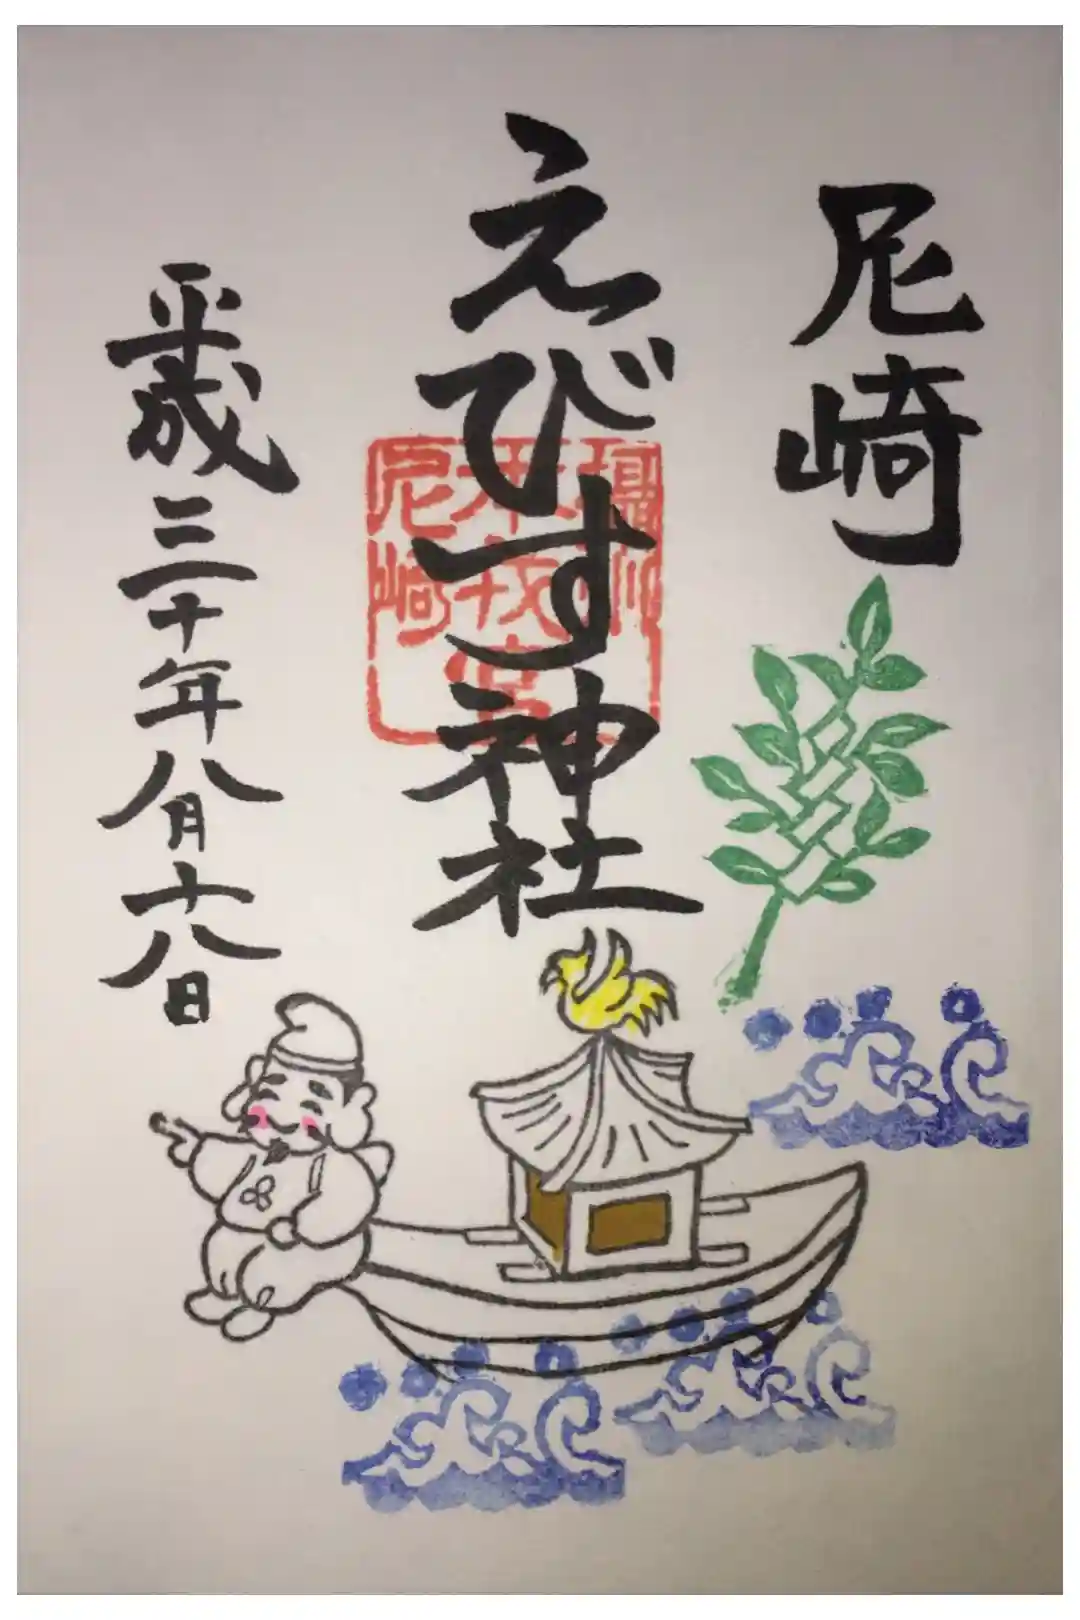 尼崎
えびす神社
平成三十年八月十八日